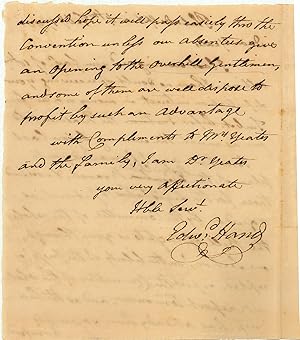 discussed hope it will pass entirely thro the
Convention unless our Absentees give
an Opening to the Overhill Gentlemen,
and some of them are well dispose to
profit by such an Advantage
with Compliments to Mrs Yeates
and the Family, I am Dr Yeates
your very affectionate
Hble Servt.
Edwd. Hand